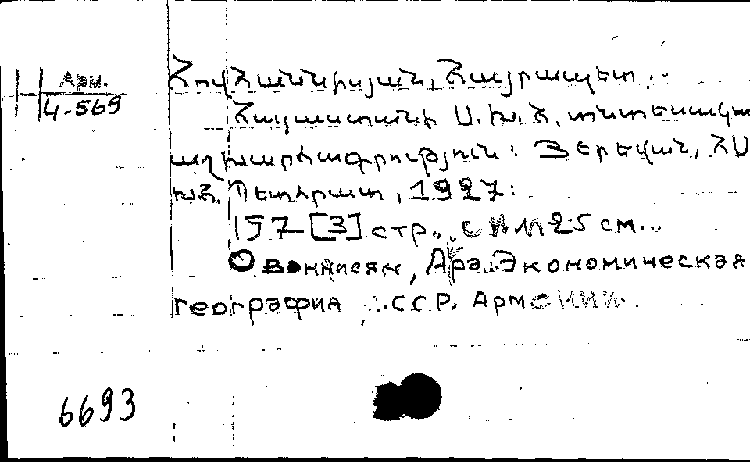 Арм.
4-569
Հովհաննիսյան, Հայրապետ..
Հայաստանի Ս.Խ.Հ. տնտեսական
աշխարհագրություն: Յերեվան, ՀՍ
ԽՀ. Պետհրատ, 1927:
157 [3] стр., с илл 25 см..
Ованнисян, Айр. Экономическая
география ССР. Армении.
6693